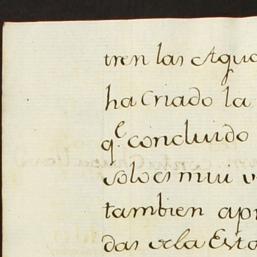 tren las Agua
ha criado la
q.e concluido
solo es mui u
tambien apr
das de la Esta